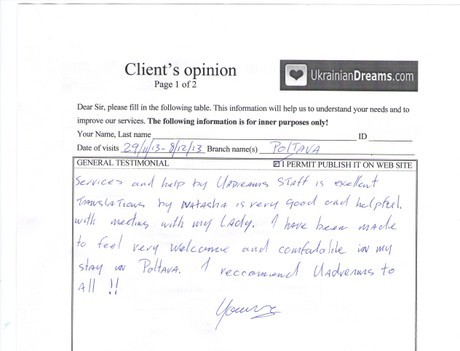 Client's opinion
UkrainianDreams.com
Page 1 of 2
Dear Sir, please fill in the following table. This information will help us to understand your needs and to
improve our services. The following information is for inner purposes only!
Your Name, Last name ID
Date of visits 29/11/13 - 8/12/13 Branch name(s) POLTAVA
GENERAL TESTIMONIAL I PERMIT PUBLISH IT ON WEB SITE
Services and help by UADREAMS STAFF is excellent
Translations by NATASHA is very Good and helpful.
with meeting with my LADY. I have been made
to feel very welcome and comfatable in my
stay in POLTAVA. I reccommend UADREAMS to
all !!